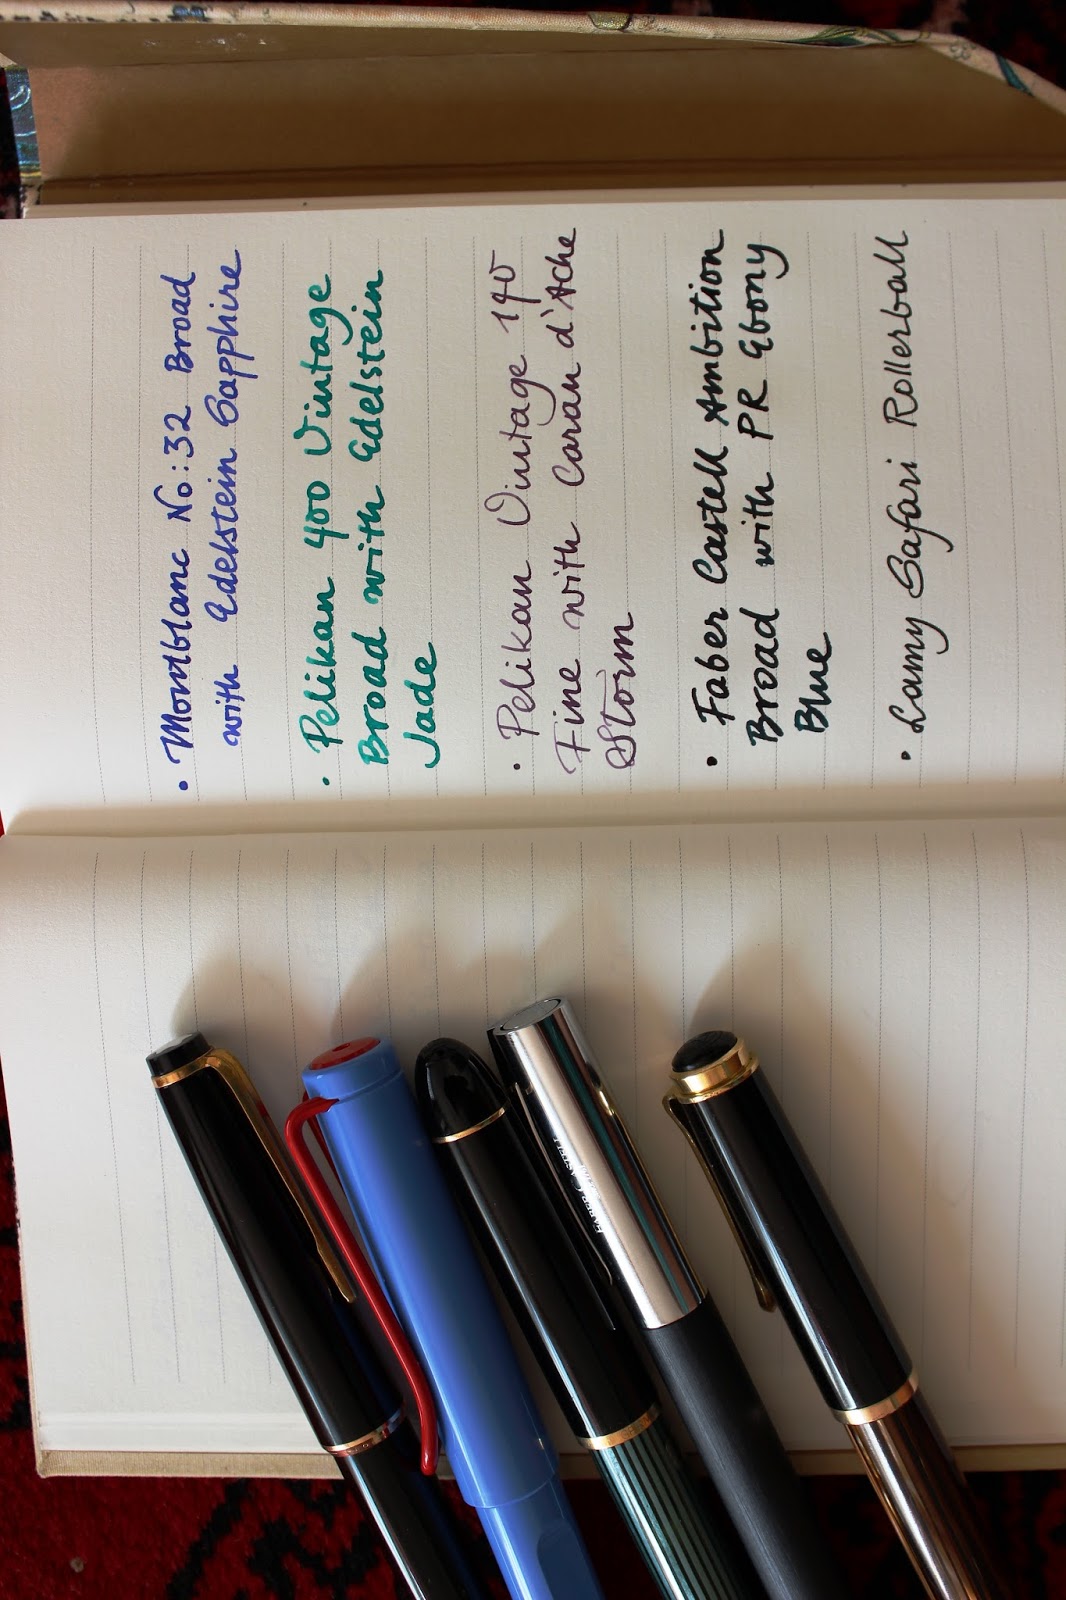 • Montblanc No:32 Broad
with Edelstein Sapphire
• Pelikan 400 Vintage
Broad with Edelstein
Jade
• Pelikan Vintage 140
Fine with Caran d'Ache
Storm
• Faber Castell Ambition
Broad with PR Ebony
Blue
• Lamy Safari Rollerball
FABER-CASTELL